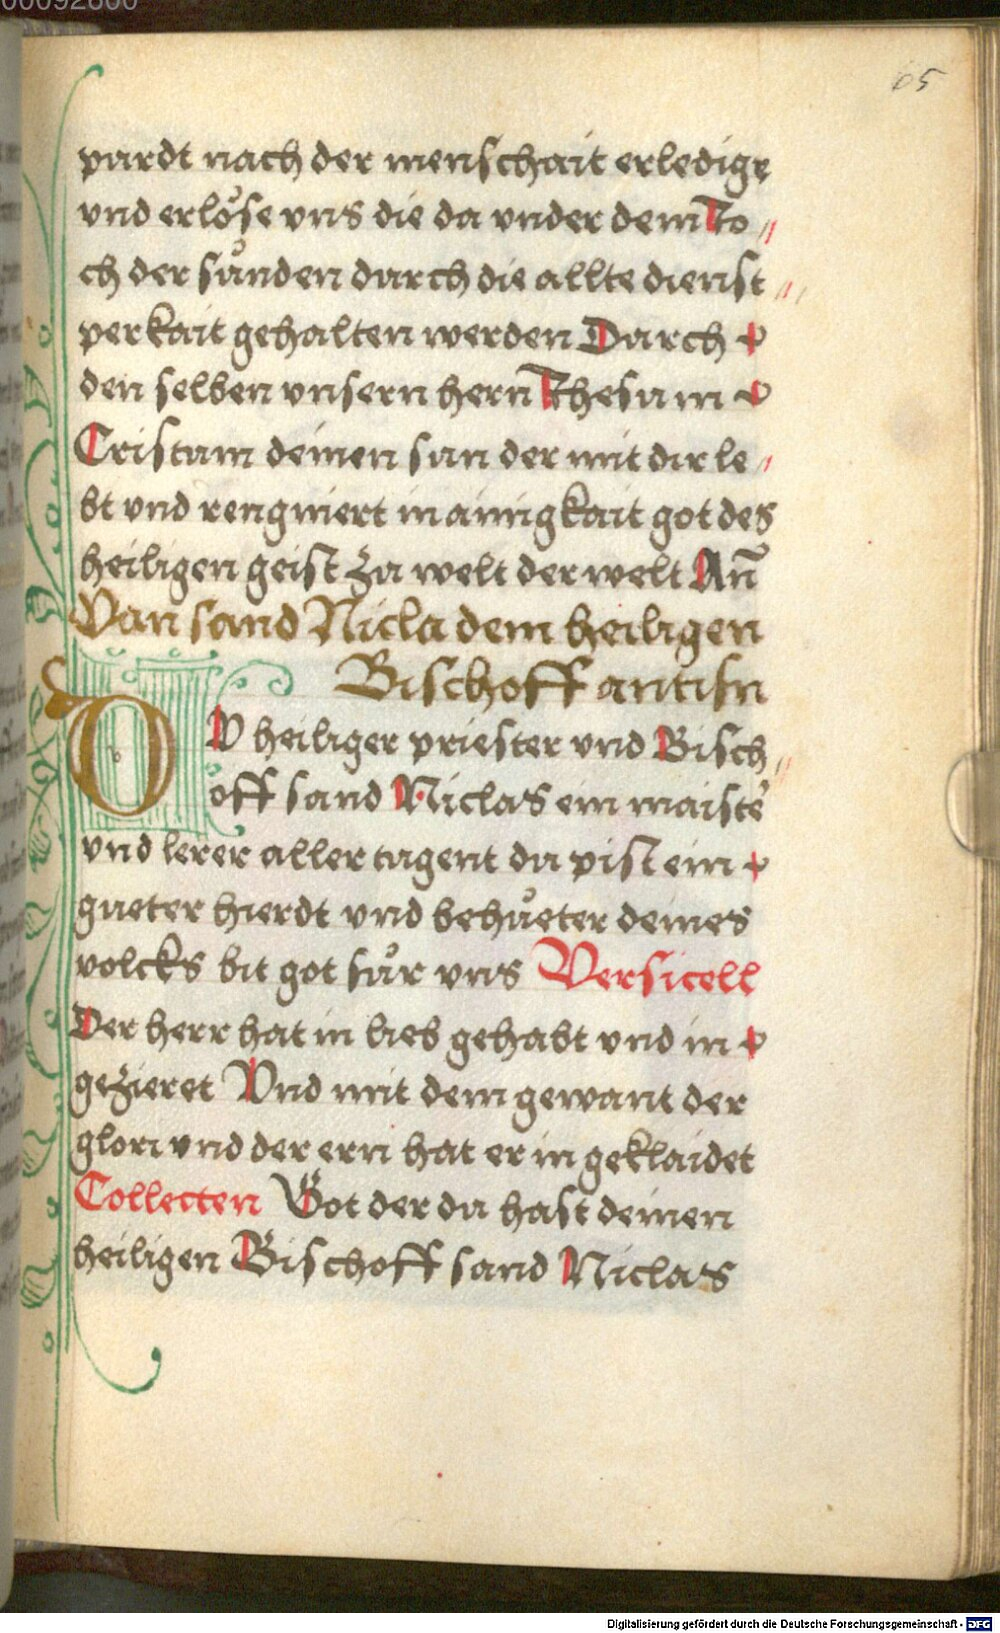 00092800
65
purdt nach der menschait erledige
vnd erlöse vns die da vnder dem Jo //
ch der sůnden durch die allte dienst //
perkait gehalten werden Durch
den selben vnsern hern Jhesum
Cristum deinen sun der mit dir le /
bt vnd rengniert in ainigkait got des
heiligen geist zu welt der welt Am̄
Van sand Nicla dem heiligen
Bischoff antifn
O
DV heiliger priester vnd Bisch //
off sand Niclas ein maiste᷑
vnd lerer aller tugent du pist ein
gueter hierdt vnd behůeter deines
volcks bit got fůr vns Versicell
Der herr hat in lieb gehabt vnd in
gezieret Vnd mit dem gewant der
glori vnd der ern hat er in geklaidet
Collecten Got der du hast deinen
heiligen Bischoff sand Niclas
Digitalisierung gefördert durch die Deutsche Forschungsgemeinschaft - DFG